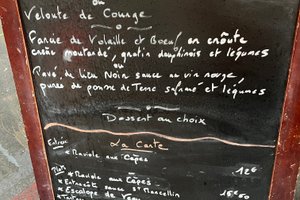 ou
Velouté de Courge
Farcie de Volaille et Boeuf en croûte
moutarde, gratin dauphinois et légumes
ou
Pavé de lieu Noir sauce au vin rouge,
purée de pomme de Terre safrané et légumes
Dessert au choix
La Carte
Entrée
* Raviole aux Cèpes 12€
Plat
* Raviole aux Cèpes
* Entrecôte sauce St Marcellin
* Escalope de Veau 15€50